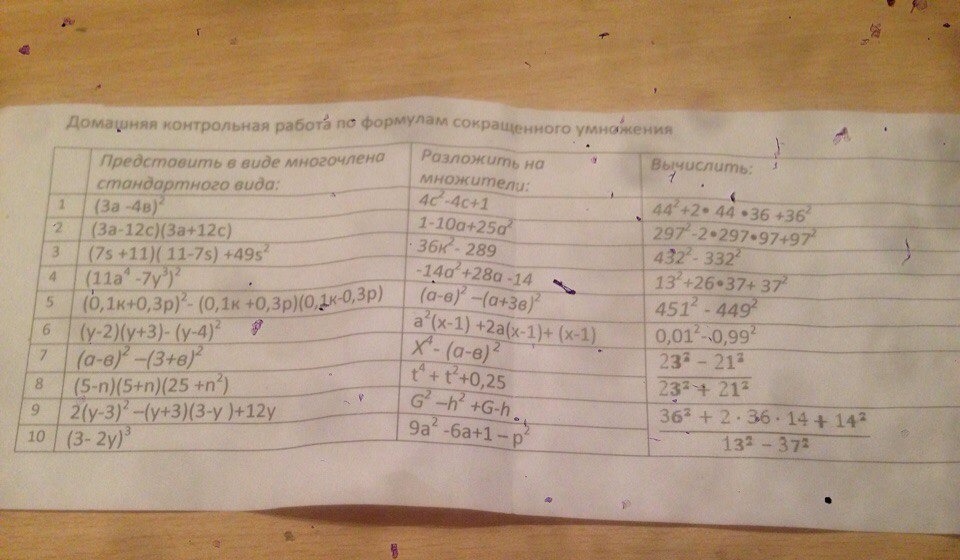 Домашняя контрольная работа по формулам сокращенного умножения
Представить в виде многочлена стандартного вида: Разложить на множители: Вычислить:
1 (3а -4в)² 4с²-4с+1 44²+2• 44 •36 +36²
2 (3а-12с)(3а+12с) 1-10а+25а² 297²-2•297•97+97²
3 (7s +11)( 11-7s) +49s² 36к²- 289 432²- 332²
4 (11a⁴ -7y³)² -14а²+28а -14 13²+26•37+ 37²
5 (0,1к+0,3р)²- (0,1к +0,3р)(0,1к-0,3р) (а-в)² –(а+3в)² 451² - 449²
6 (у-2)(у+3)- (у-4)² а²(х-1) +2а(х-1)+ (х-1) 0,01²- 0,99²
7 (а-в)² –(3+в)² Х⁴- (а-в)² 23² − 21²
8 (5-n)(5+n)(25 +n²) t⁴ + t²+0,25 23² + 21²
9 2(у-3)² –(у+3)(3-у )+12у G² –h² +G-h 36² + 2 · 36 · 14 + 14²
10 (3- 2у)³ 9а² -6а+1 – р² 13² − 37²